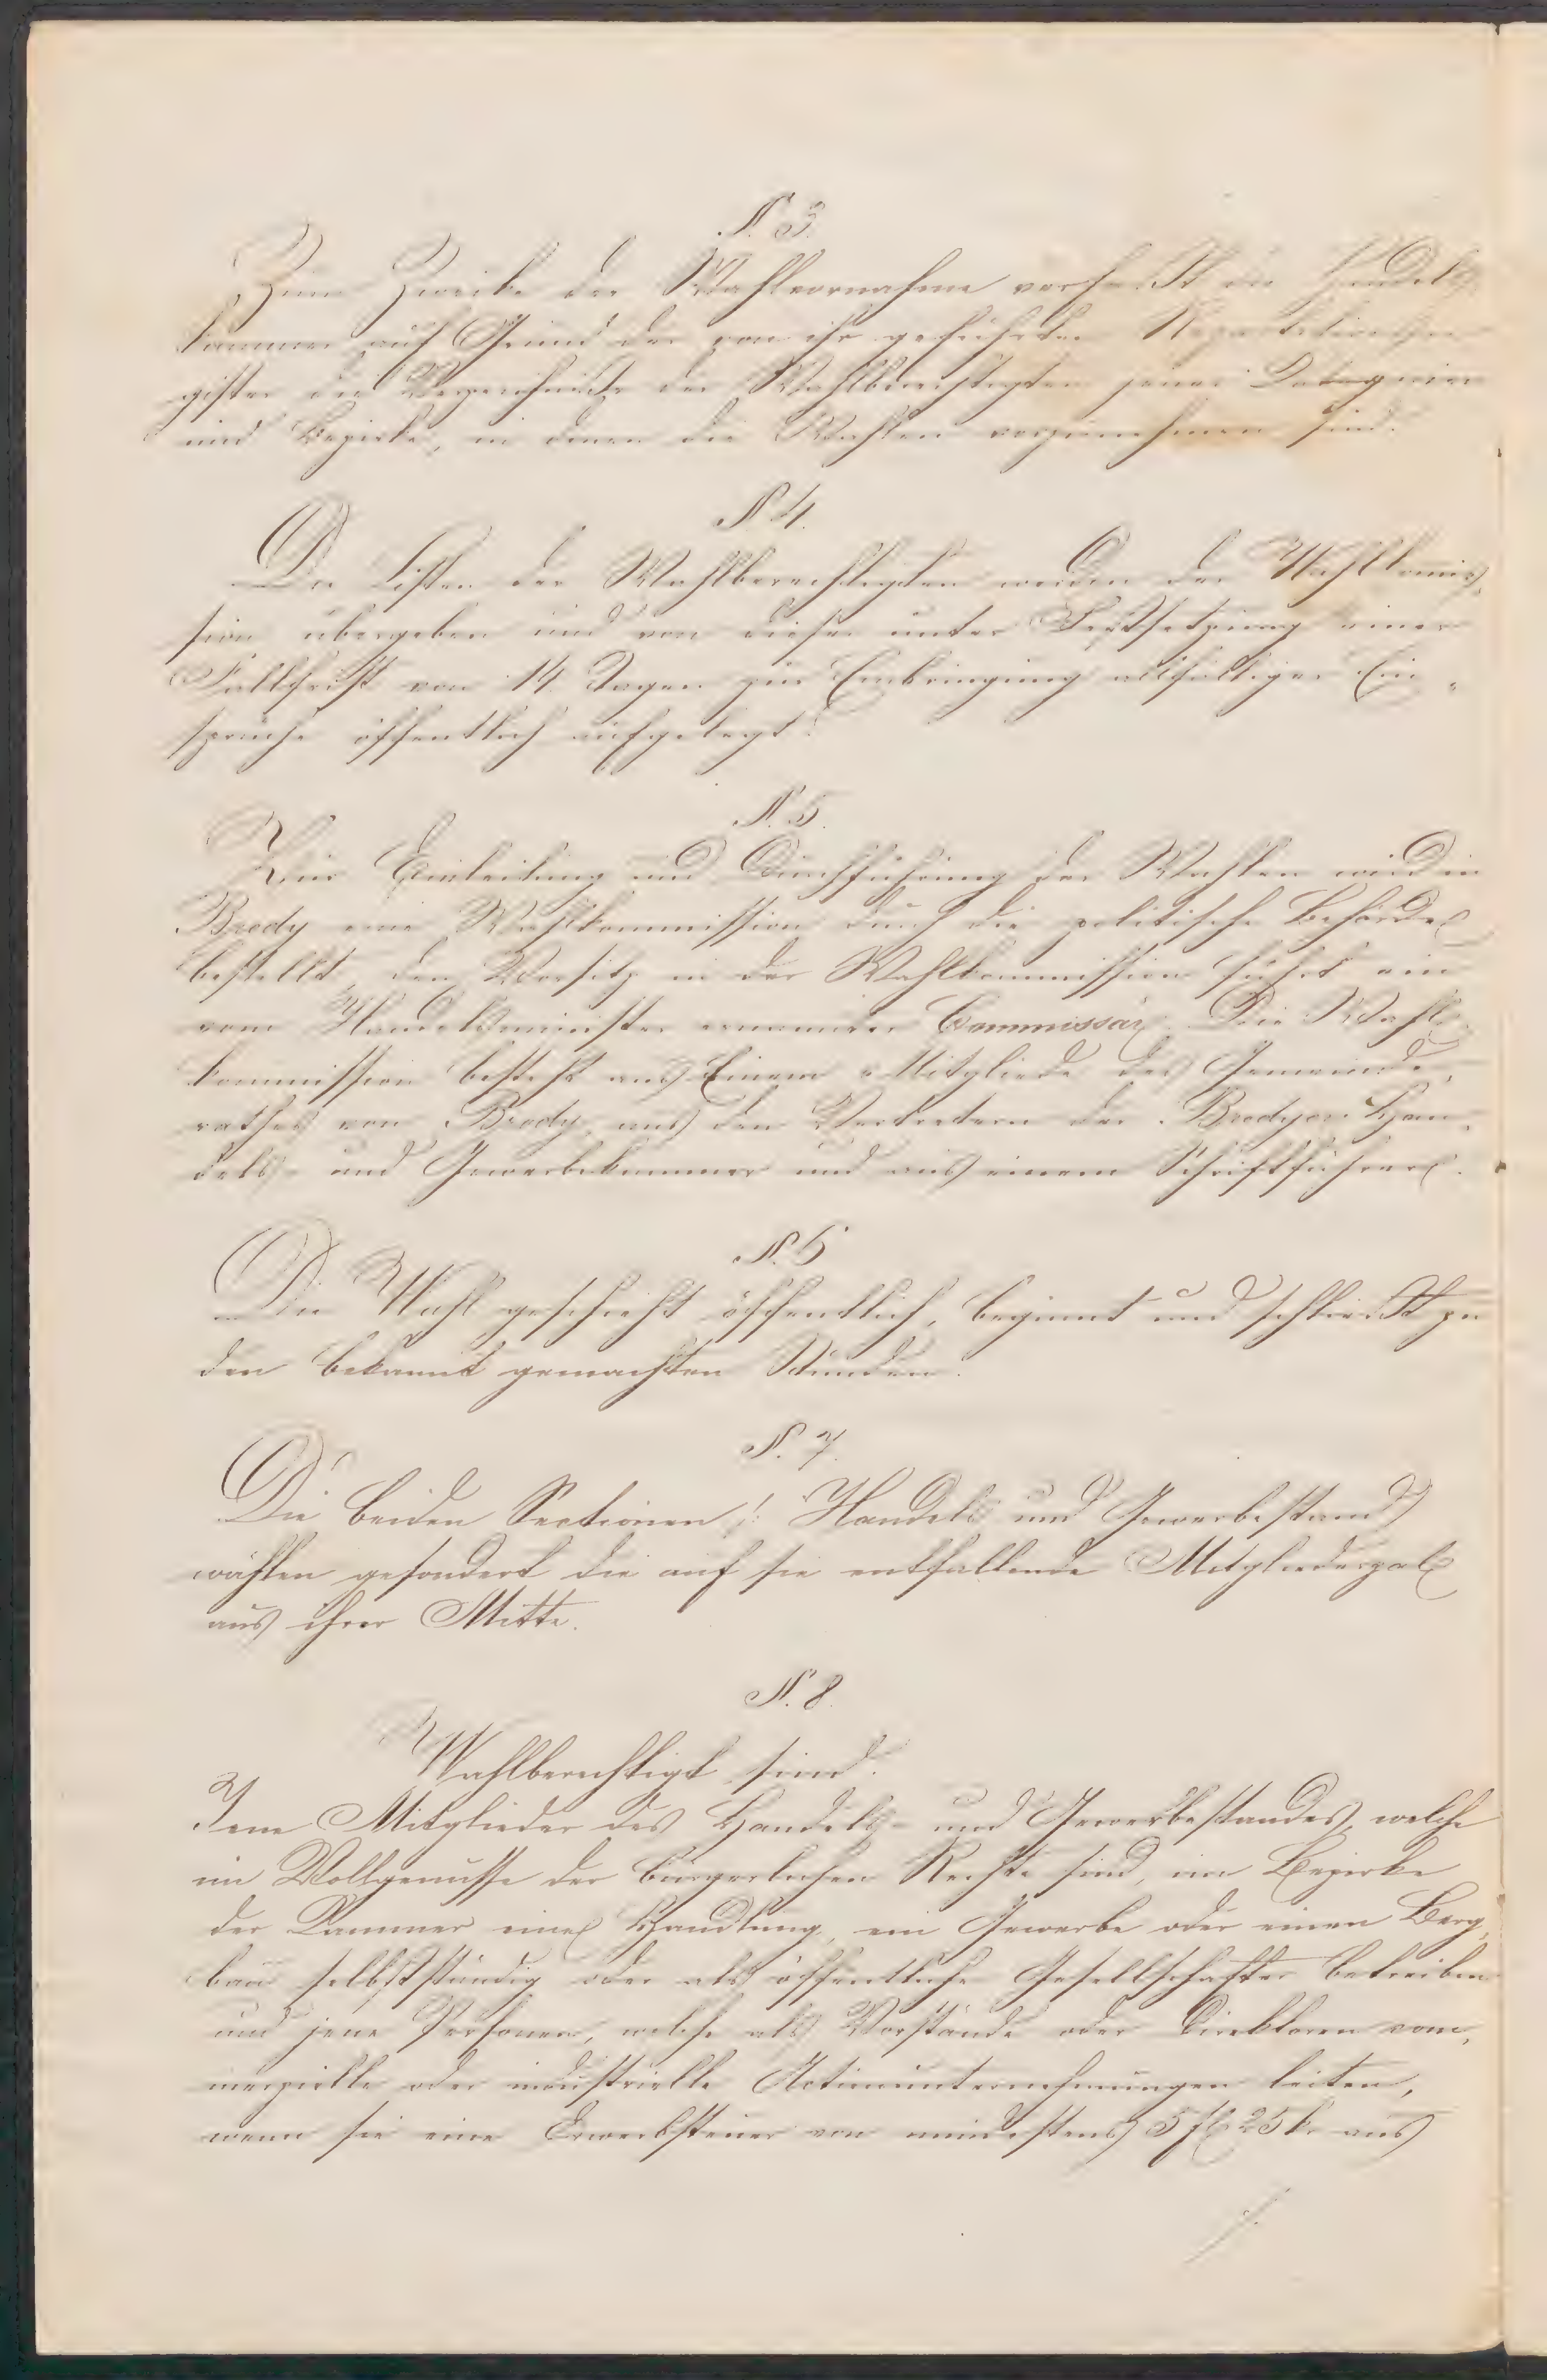 §. 3.
Zum Zwecke der Wahlvornahme verfaßt die Handels
kammer auf Grund der von ihr geführten
gister die Verzeichniße der Wahlberechtigten jener Categorien
und Bezirke, in denen die Wahlen vorzunehmen sind.
§ 4.
Die Listen der Wahlberechtigten werden der Wahlkomis„
sion übergeben und von dieser unter Festsetzung einer
Fallfrist von 14 Tagen zur Einbringung allfälliger Ein„
sprüche öffentlich aufgelegt.
§. 5.
Zur Einleitung und Durchführung der Wahlen wird in
Brody eine Wahlkommission durch die politische Behörde
bestellt, den Vorsitz in der Wahlkommission führt ein
vom Handelsminister ernannter Commissär. Die Wahl„
kommission besteht aus Einem Mitgliede des Gemeinde„
rathes von Brody, aus den Vertretern der Brodyer Han„
dels- und Gewerbekammer und aus einem Schriftführer.
§. 6
Die Wahl geschieht öffentlich, beginnt und schließt zu
den bekannt gemachten Stunden.
§. 7.
Die beiden Sectionen /: Handels und Gewerbestand
wählen gesondert die auf sie entfallende Mitgliederzal
aus ihrer Mitte.
§. 8.
Wahlberechtigt sind:
Jene Mitglieder des Handels- und Gewerbestandes, welche
im Vollgenusse der bürgerlichen Rechte sind, im Bezirke
der Kammer eine Handlung, ein Gewerbe oder einen Berg„
bau selbstständig oder als öffentliche Gesellschafter betreiben
und jene Personen, welche als Vorstände oder Direktoren com„
merzielle oder industrielle Actienunternehmungen leiten,
wenn sie eine Erwerbsteuer von mindestens 5 fl 25 kr aus